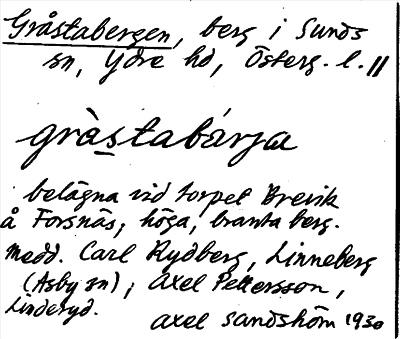 Gråstabergen, berg i Sunds
sn, Ydre hd, Österg. l. ||
gràstabárja
belägna vid torpet Brevik
å Forsnäs; höga, branta berg.
Medd. Carl Rydberg, Linneberg
(Asby sn), Axel Pettersson,
Linderyd.
Axel Sandström 1930